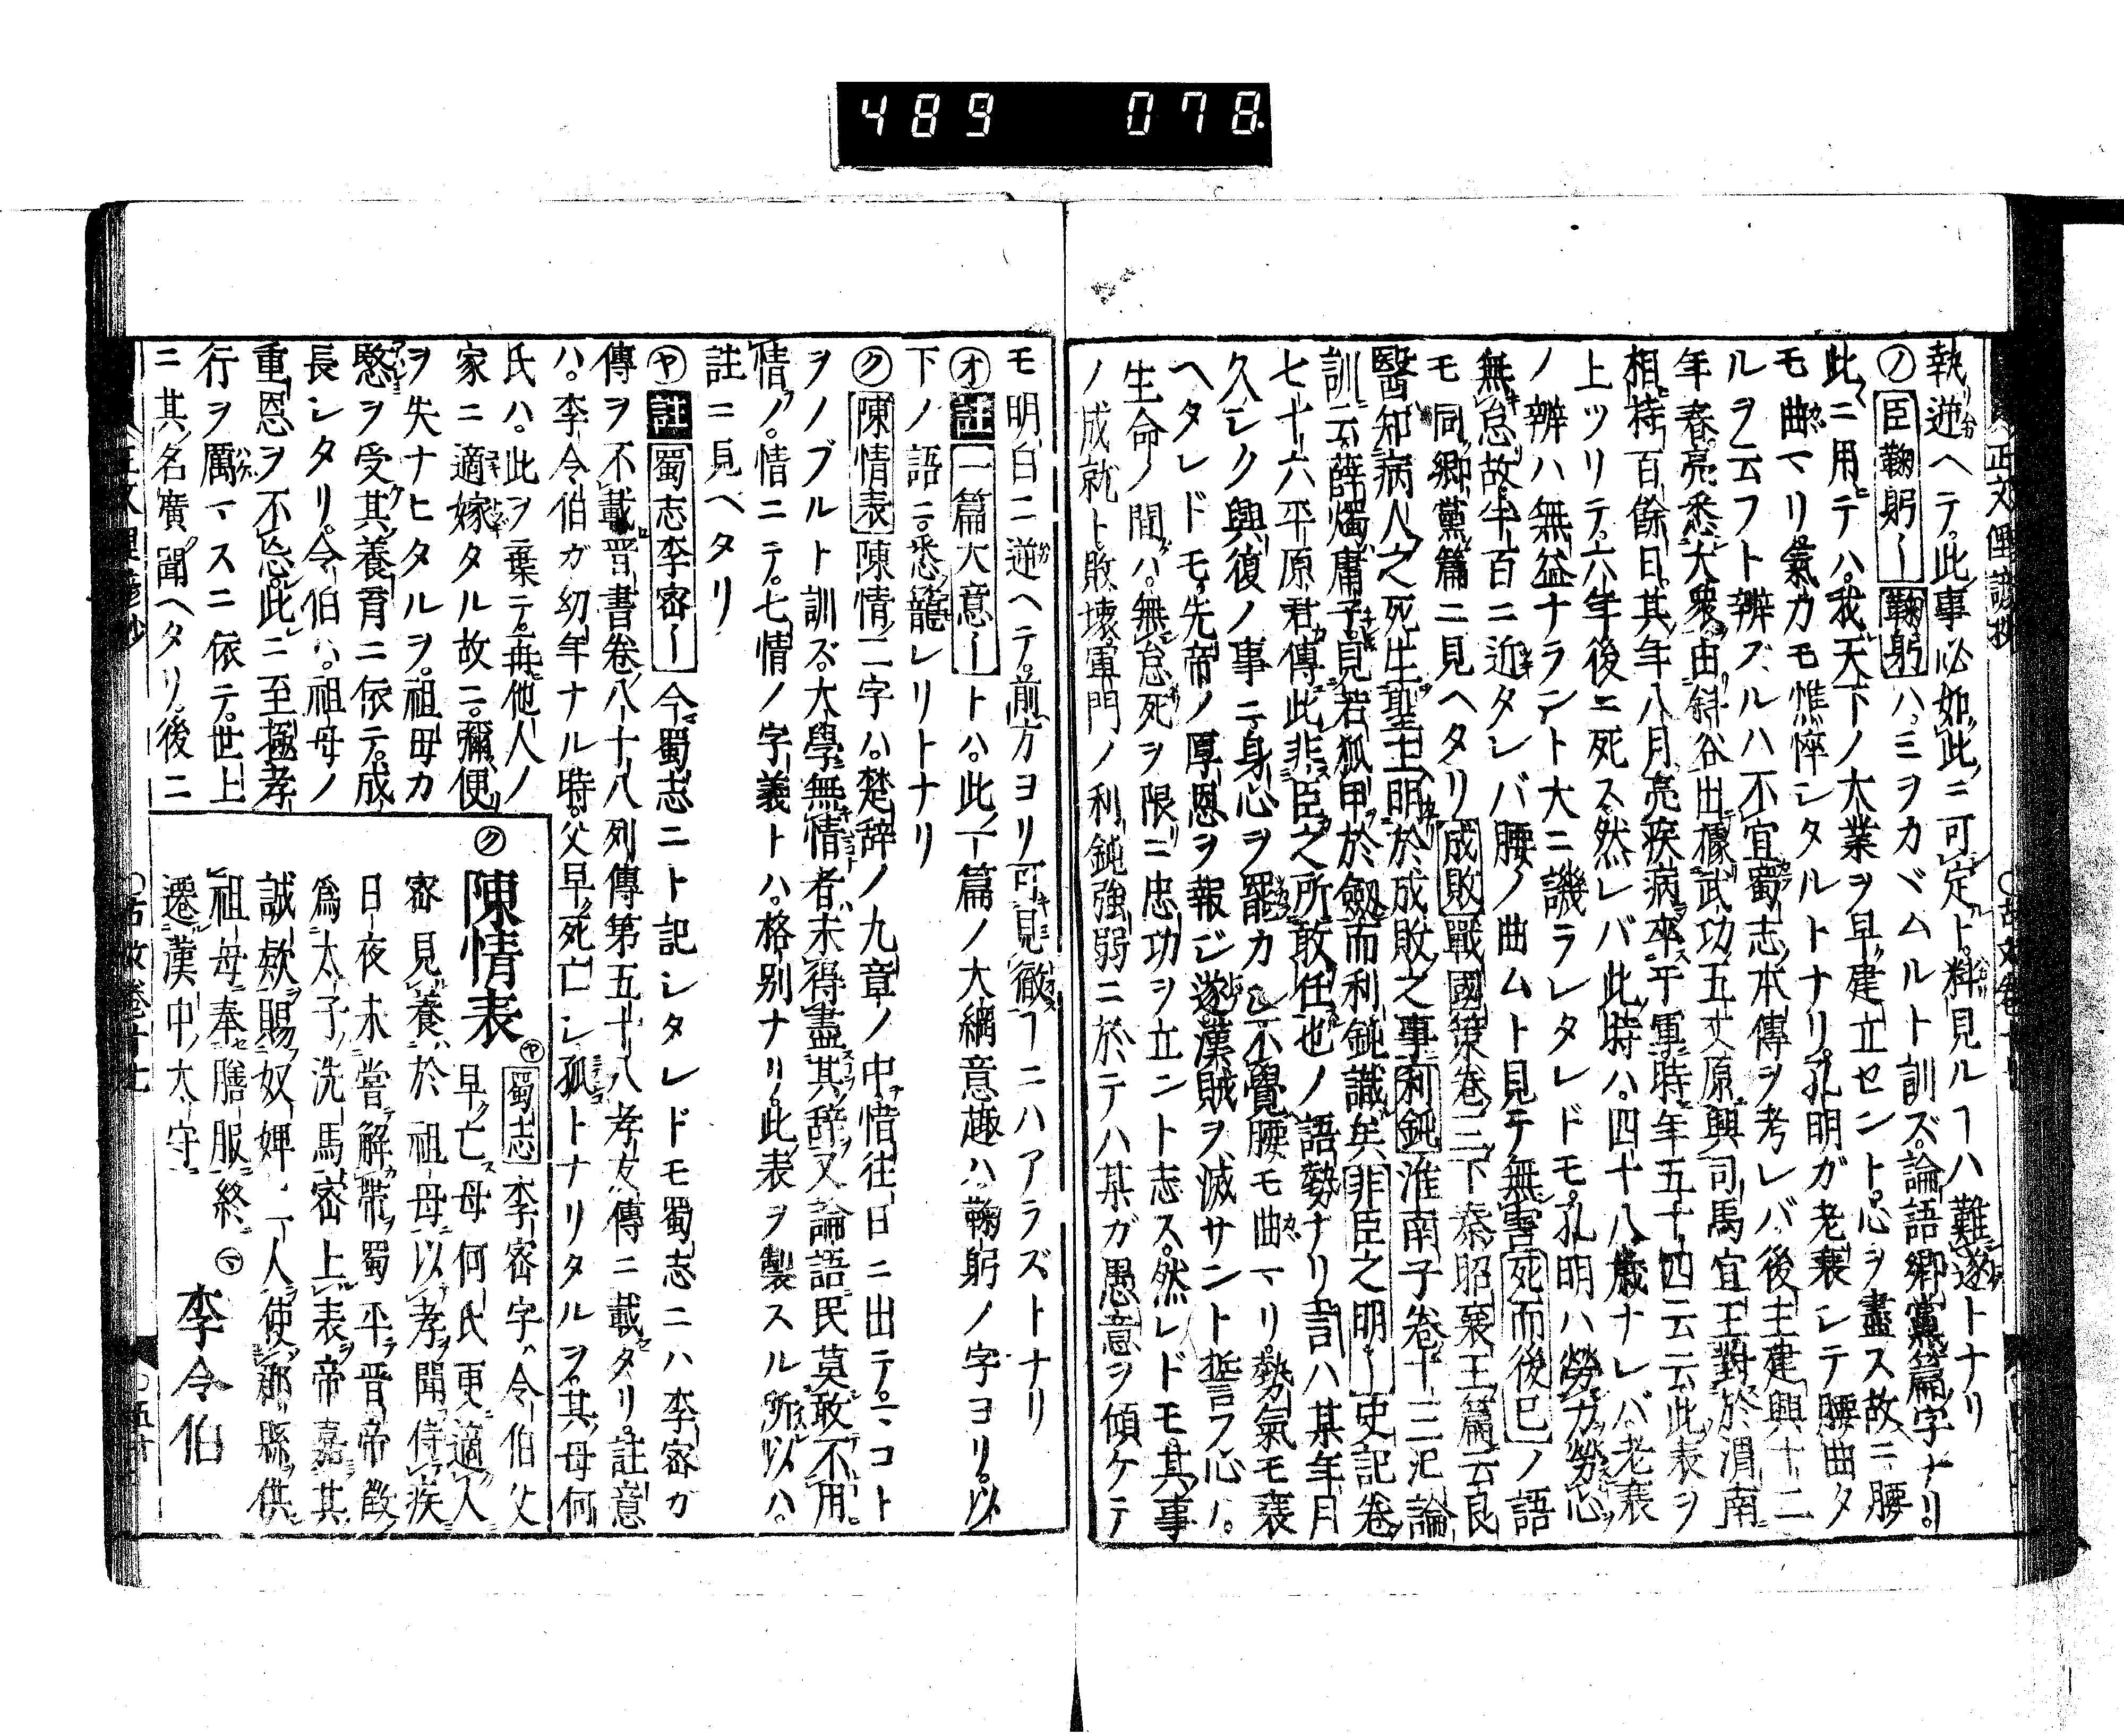 489 078
執逆ヘテ此事必如此ニ可定ト料見ルヿハ難遂トナリ
ノ 臣鞠躬｜鞠躬ハミヲカヾムルト訓ズ論語郷黨篇字ナリ
此ニ用テハ我天下ノ大業ヲ早建立セント心ヲ盡ス故ニ腰
モ曲マリ氣力モ憔悴シタルトナリ孔明ガ老衰シテ腰曲タ
ルヲ云フト辨ズルハ不宜蜀志本傳ヲ考レバ後主建興十二
年春亮悉大衆由斜谷出據武功五丈原與司馬宣王對於渭南
相持百餘日其年八月亮疾病卒于軍時年五十四云云此表ヲ
上ツリテ六年後ニ死ス然レバ此時ハ四十八歳ナレバ老衰
ノ辨ハ無益ナラント大ニ譏ラレタレドモ孔明ハ勞力勞心
無怠故半百ニ近タレバ腰ノ曲ムト見テ無害 死而後已ノ語
モ同郷黨篇ニ見ヘタリ 成敗 戰國策卷三下秦昭襄王篇云良
醫知病人之死生聖主明於成敗之事 利鈍 淮南子卷十三氾論
訓云薛燭庸子見若狐甲於劔而利鈍識矣 非臣之明｜史記卷
七十六平原君傳此非臣之所敢任也ノ語勢ナリ言ハ某年月
久シク興復ノ事ニ身心ヲ罷カシ不覺腰モ曲マリ勢氣モ衰
ヘタレドモ先帝ノ厚恩ヲ報ジ遂漢賊ヲ滅サント誓フ心ハ
生命ノ間ハ無怠死ヲ限ニ忠功ヲ立ント志ス然レドモ其事
ノ成就ト敗壊軍門ノ利鈍強弱ニ於テハ某ガ愚意ヲ傾ケテ
モ明白ニ逆ヘテ前方ヨリ可見徹ヿニハアラズトナリ
オ 註 一篇大意｜トハ此一篇ノ大綱意趣ハ鞠躬ノ字ヨリ以
下ノ語ニ悉籠レリトナリ
ク 陳情表 陳情二字ハ楚辞ノ九章ノ中惜往日ニ出テマコト
ヲノブルト訓ズ大學無情者未得盡其辞又論語民莫敢不用
情ノ情ニテ七情ノ字義トハ格別ナリ此表ヲ製スル所以ハ
註ニ見ヘタリ
ヤ 註 蜀志李密｜今蜀志ニト記シタレドモ蜀志ニハ李密ガ
傳ヲ不載晋書卷八十八列傳第五十八孝友傳ニ載タリ註意
ハ李令伯ガ幼年ナル時父早死亡シ孤トナリタルヲ其母何
氏ハ此ヲ棄テ再他人ノ
家ニ適嫁タル故ニ彌便
ヲ失ナヒタルヲ祖母カ
愍ヲ受其養育ニ依テ成
長シタリ令伯ハ祖母ノ
重恩ヲ不忘此ニ至極孝
行ヲ厲マスニ依テ世上
ニ其名廣聞ヘタリ後ニ
ク 陳情表 ヤ 蜀志 李密字令伯父
早亡母何氏更適人
密見養於祖母以孝聞侍疾
日夜未嘗解帯蜀平晋帝徴
爲太子洗馬密上表帝嘉其
誠欵賜奴婢二人使郡縣供
祖母奉膳服終
遷漢中太守
マ 李令伯